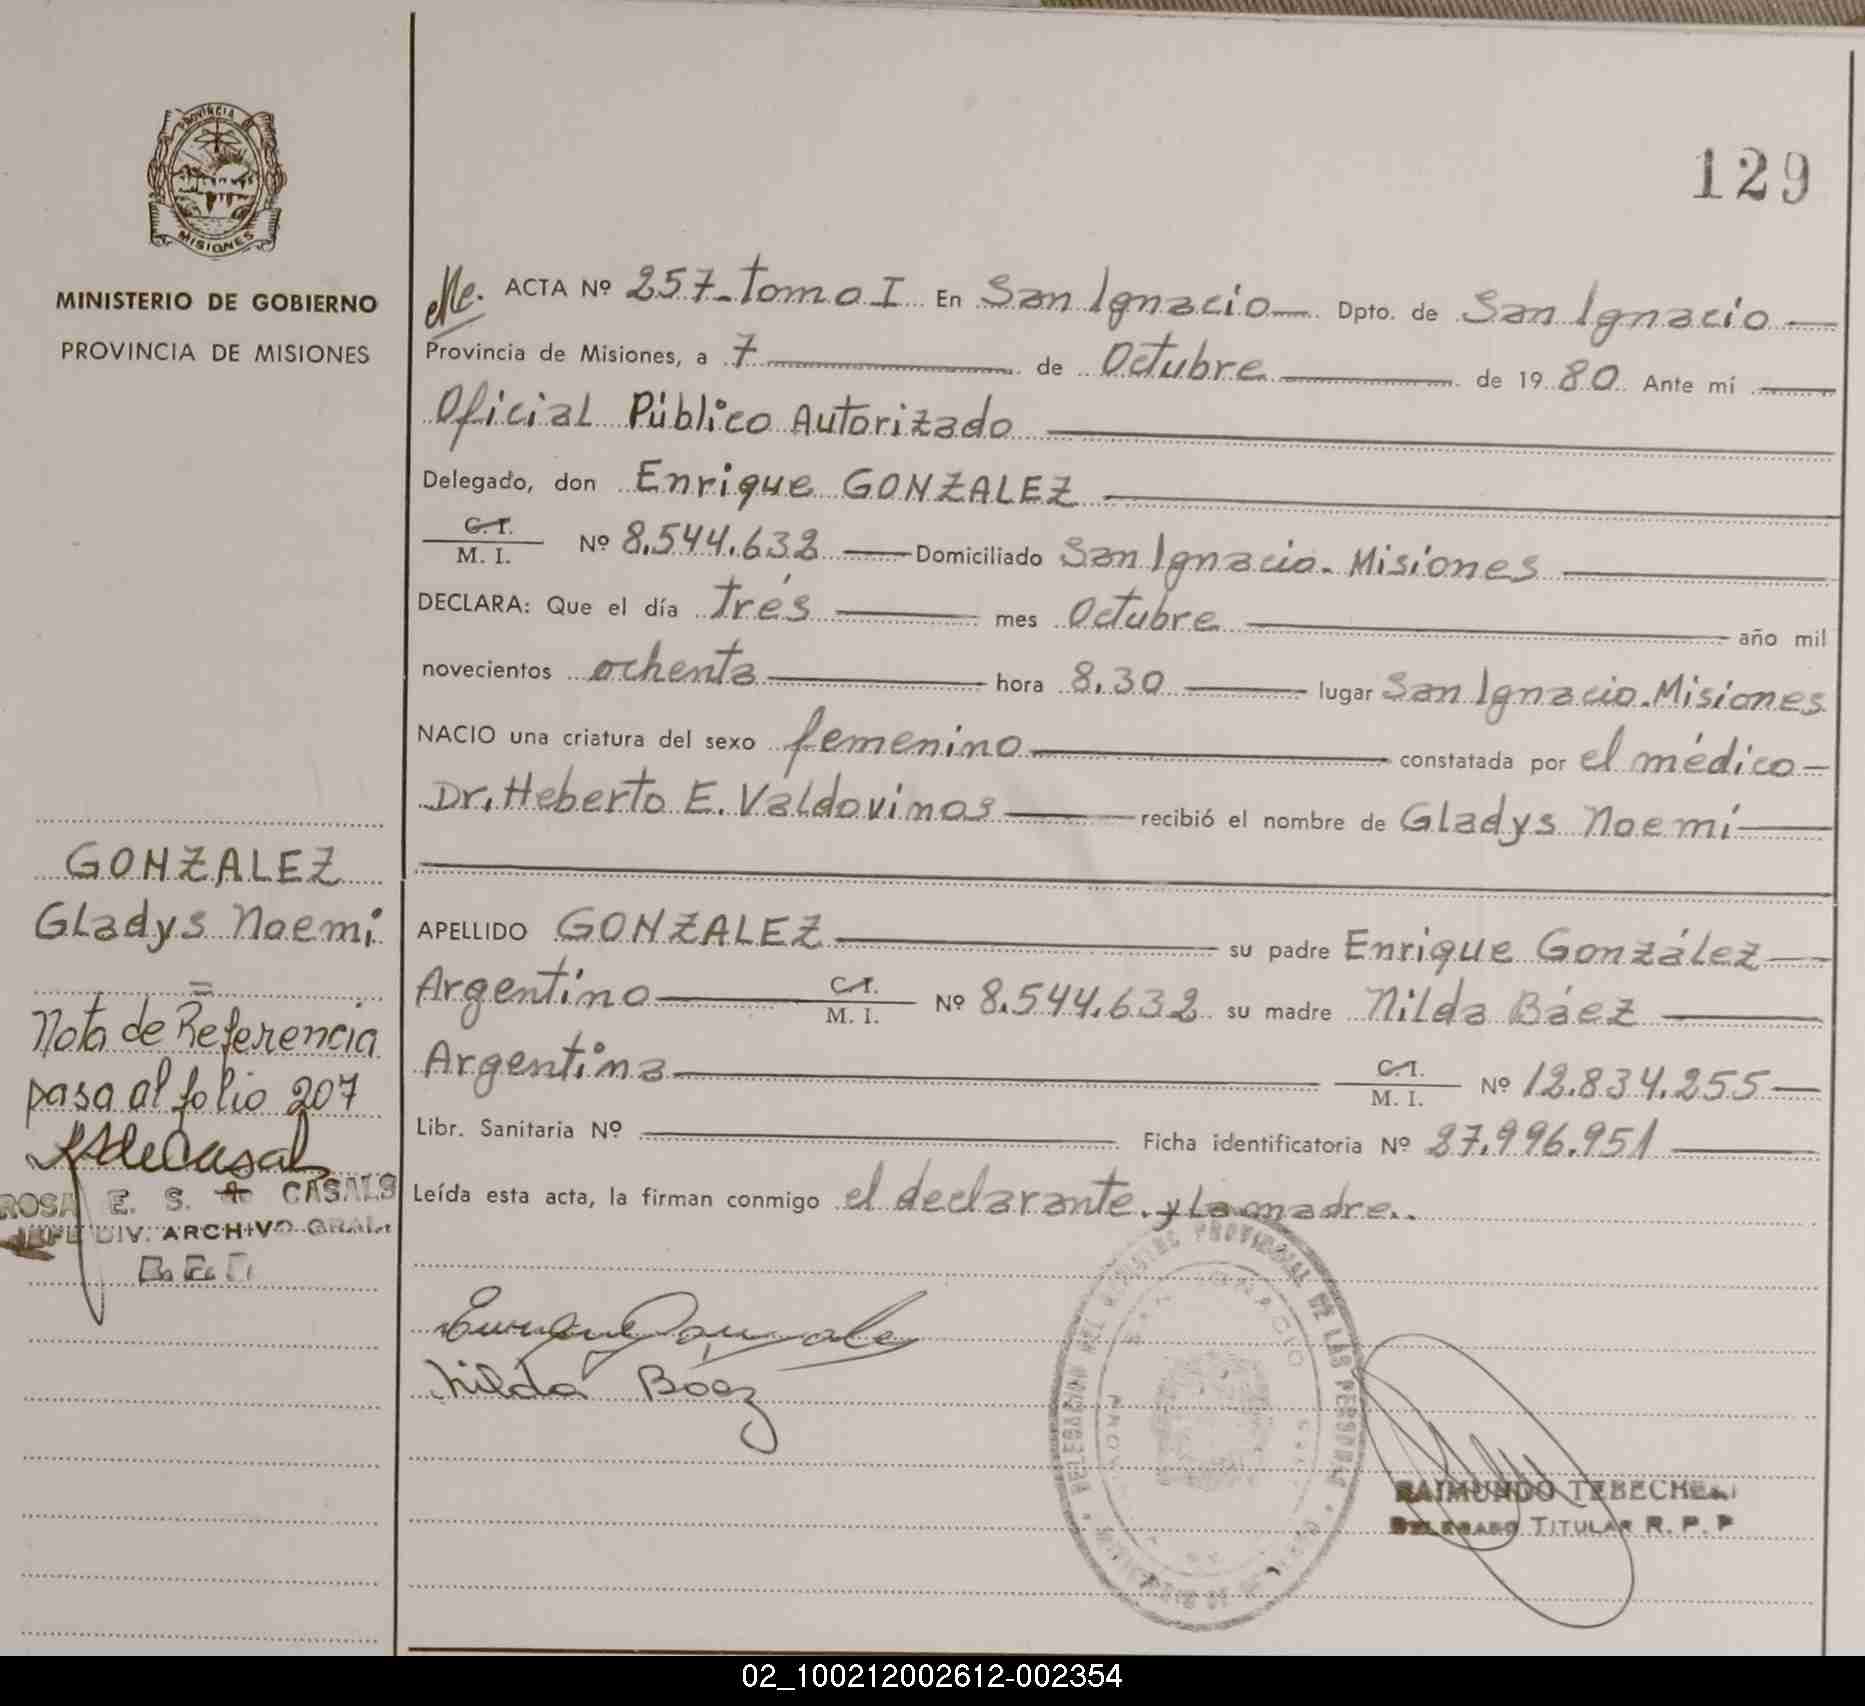 PROVINCIA DE
MISIONES
MINISTERIO DE GOBIERNO
PROVINCIA DE MISIONES
GONZALEZ
Gladys Noemi
Nota de Referencia
pasa al folio 207
ROSA E. S. A CASALS
JEFE DIV. ARCHIVO GRAL.
129
ACTA Nº 257-Tomo I En San Ignacio Dpto. de San Ignacio
Provincia de Misiones, a 7 de Octubre de 1980 Ante mí
Oficial Público Autorizado
Delegado, don Enrique GONZALEZ
C. I.
M. I. Nº 8.544.632 Domiciliado San Ignacio. Misiones
DECLARA: Que el día Trés mes Octubre año mil
novecientos ochenta hora 8.30 lugar San Ignacio. Misiones
NACIO una criatura del sexo femenino constatada por el médico
Dr. Heberto E. Valdovinos recibió el nombre de Gladys Noemí
APELLIDO GONZALEZ su padre Enrique González
Argentino C. I. M. I. Nº 8.544.632 su madre Nilda Báez
Argentina C. I. M. I. Nº 12.834.255
Libr. Sanitaria Nº Ficha identificatoria Nº 27.996.951
Leída esta acta, la firman conmigo el declarante. y La madre.
Enrique Gonzalez
Nilda Báez
REGISTRO PROVINCIAL DE LAS PERSONAS
RAIMUNDO TEBECHERI
DELEGADO TITULAR R. P. P
02_100212002612-002354